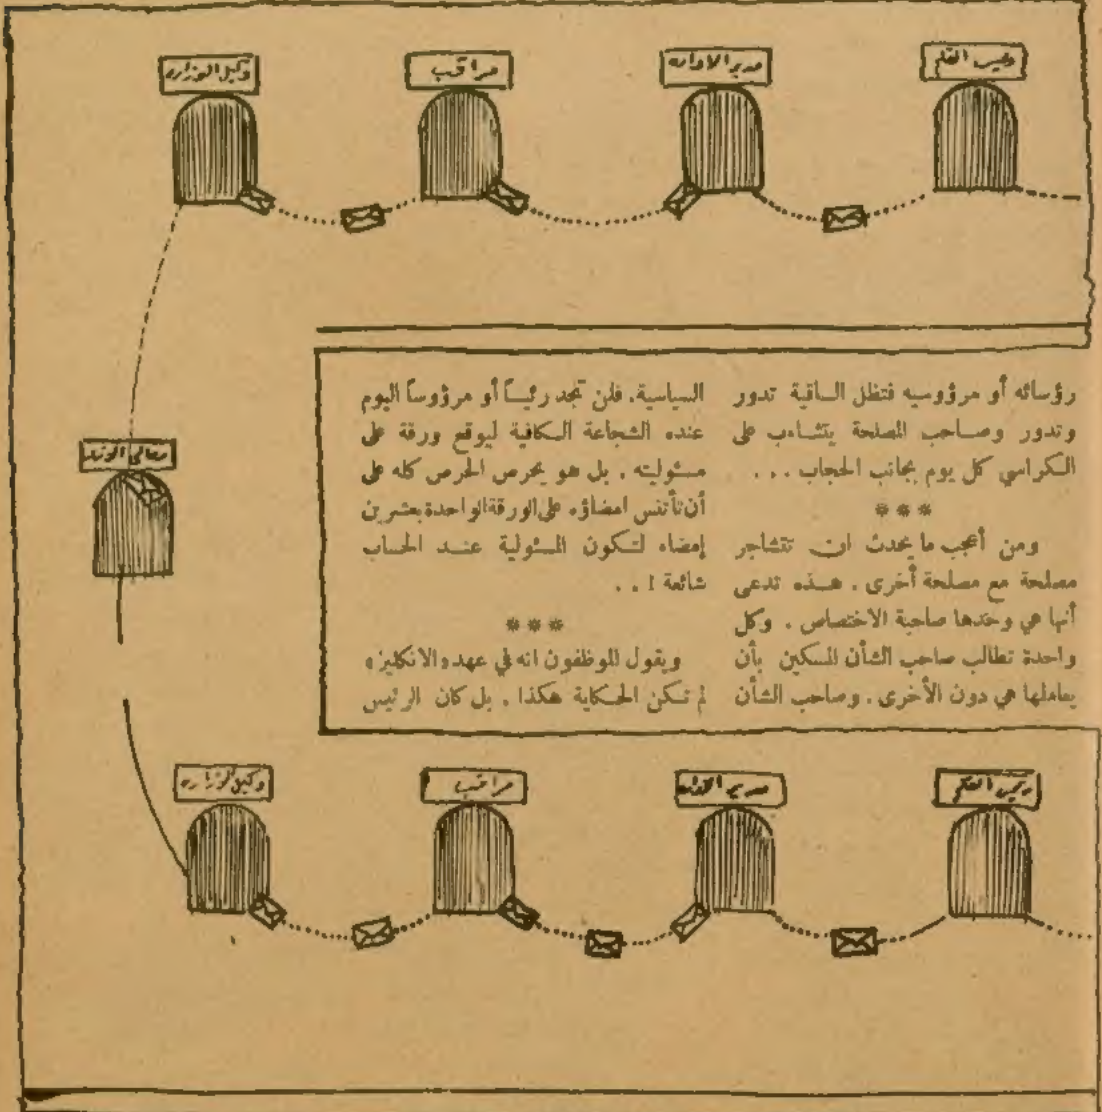 رئيس القلم
مدير الادارة
مراقب
وكيل الوزارة
معالي الوزير
رؤسائه أو مرؤوسيه فتظل الساقية تدور
وتدور وصاحب المصلحة يتثاءب على
الكراسي كل يوم بجانب الحجاب . . .
***
ومن أعجب ما يحدث ان تتشاجر
مصلحة مع مصلحة أخرى . هذه تدعى
أنها هي وحدها صاحبة الاختصاص . وكل
واحدة تطالب صاحب الشأن المسكين بأن
يعاملها هي دون الأخرى . وصاحب الشأن
السياسية . فلن تجد رئيساً أو مرؤوساً اليوم
عنده الشجاعة الكافية ليوقع ورقة على
مسئوليته . بل هو يحرص الحرص كله على
أن تأتنس امضاؤه على الورقة الواحدة بعشرين
إمضاء لتكون المسئولية عند الحساب
شائعة ! . .
***
ويقول الموظفون انه في عهد «الانكليز»
لم تكن الحكاية هكذا . بل كان الرئيس
رئيس القلم
مدير الادارة
مراقب
وكيل الوزارة